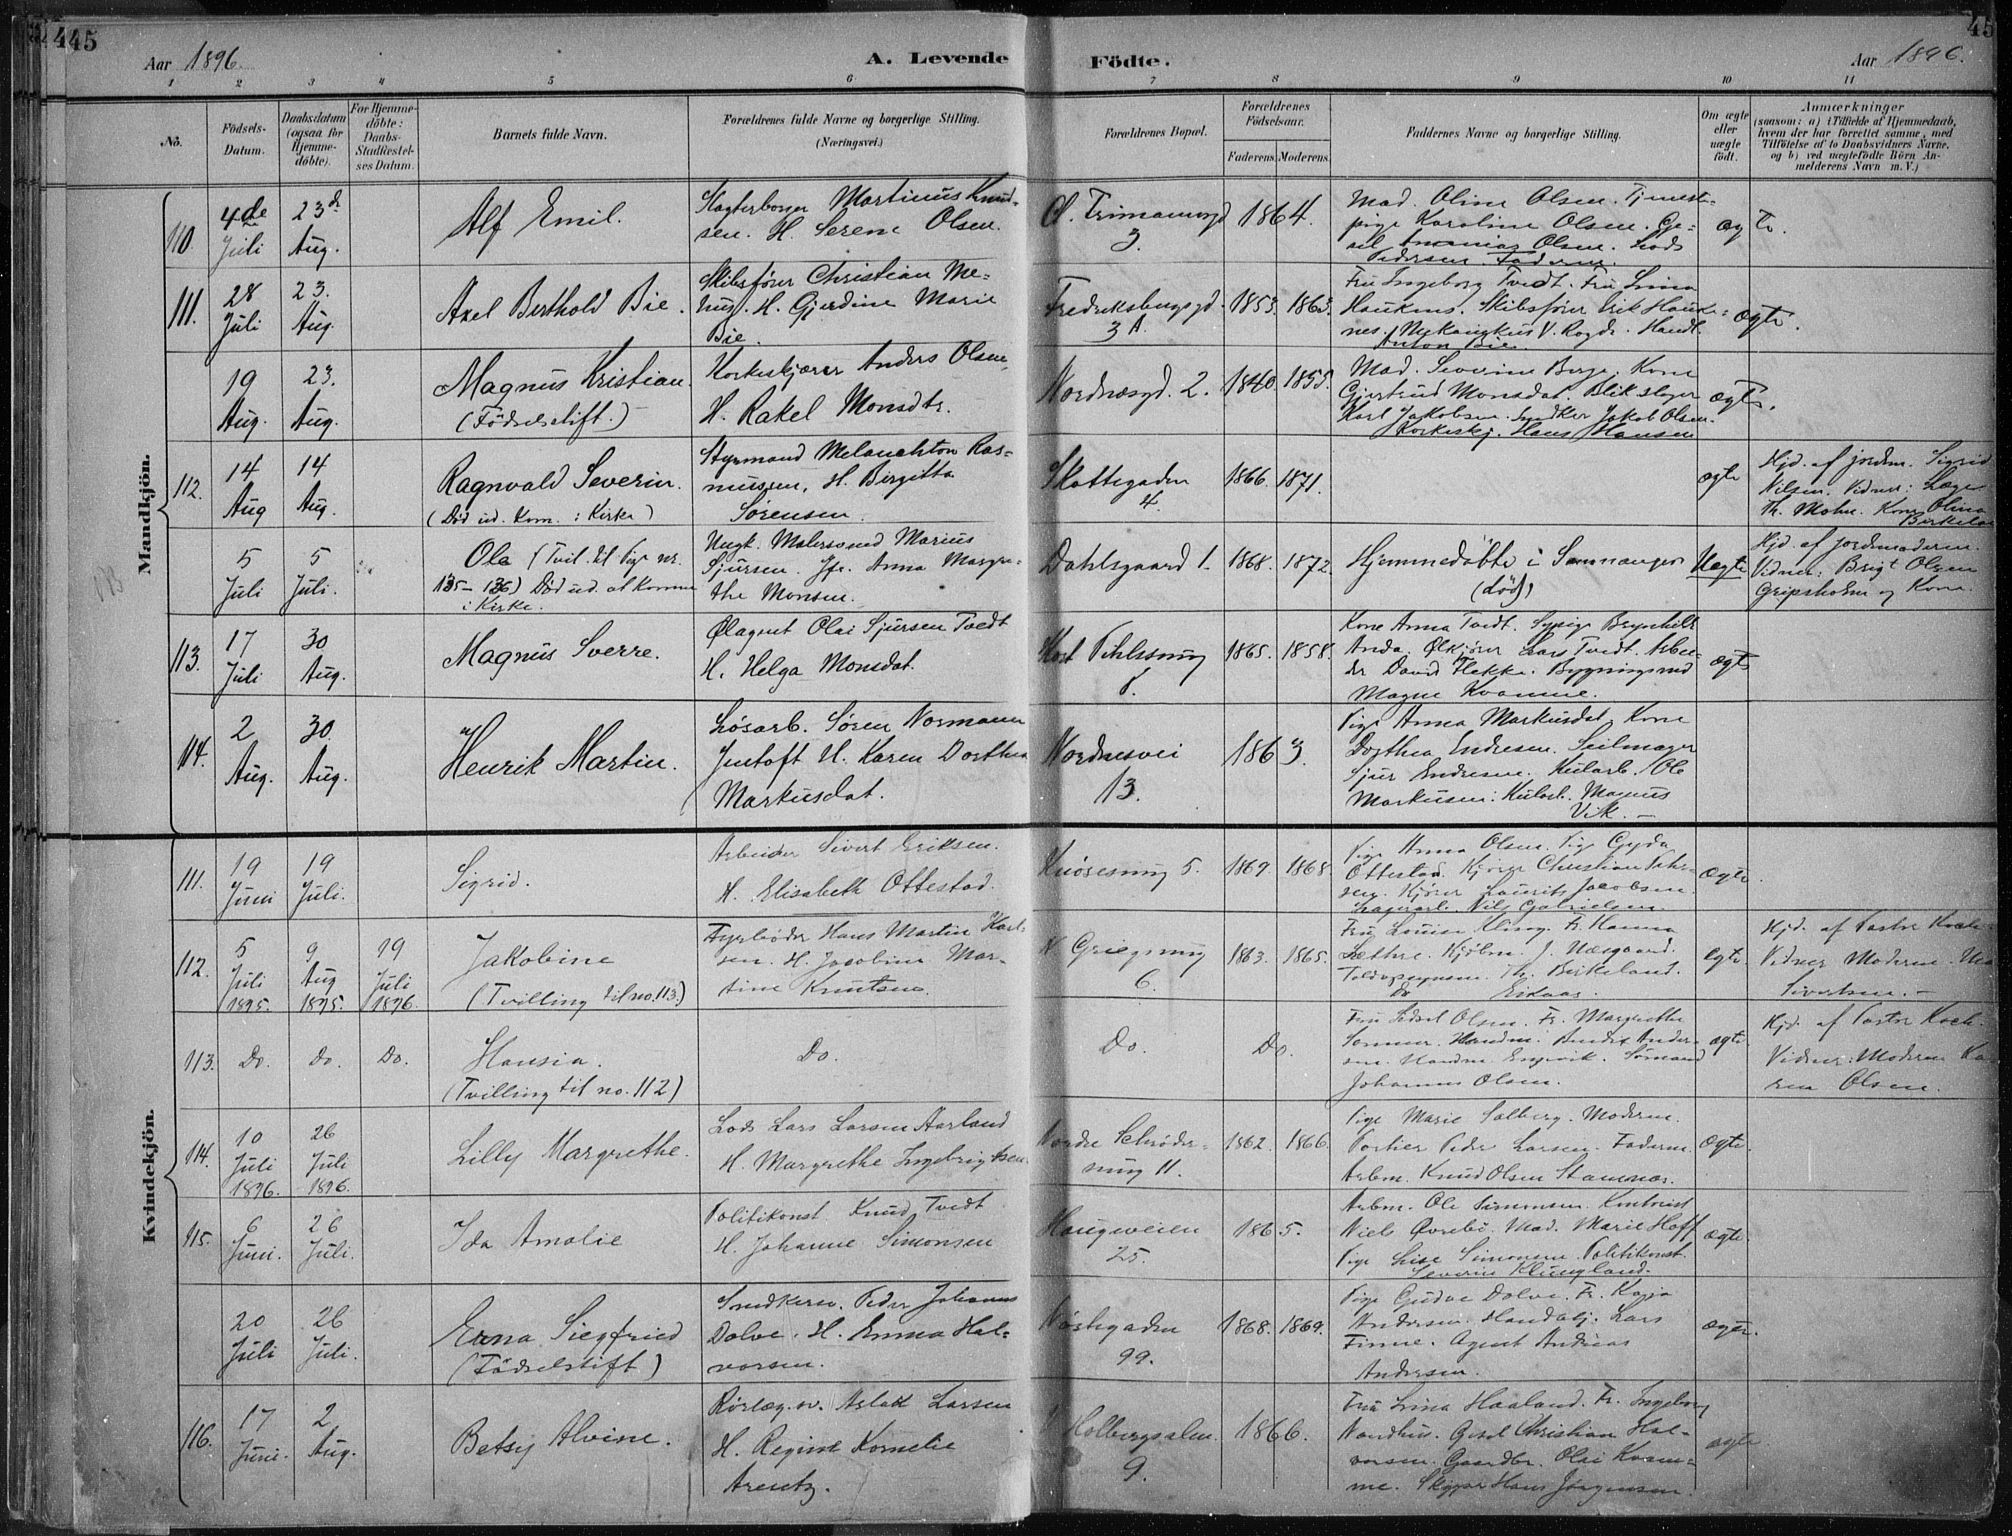 45
45
Aar 1896.
A. Levende Födte.
Aar 1896.
1 2 3 4 5 6 7 8 9 10 11
No.
Födsels-Datum.
Daabsdatum (ogsaa for Hjemme-döbte).
For Hjemme-döbte: Daabs-Stadfæstel-ses Datum.
Barnets fulde Navn.
Forældrenes fulde Navne og borgerlige Stilling.
(Næringsvei.)
Forældrenes Bopæl.
Forældrenes Födselsaar.
Faderens. Moderens.
Faddernes Navne og borgerlige Stilling.
Om ægte eller uægte födt.
Anmærkninger
(saasom: a) i Tilfælde af Hjemmedaab, hvem der har forrettet samme, med Tilföielse af to Daabsvidners Navne, og b) ved uægtefödte Börn An-melderens Navn m. V.)
Mandkjön.
110. 4de Juli
23de Aug.
Alf Emil.
Martinus Knud-
sen. H. Serene Olsen.
3.
1864.
Mad. Oline Olsen. Tjenest-
pige Karoline Olsen. Ge-
sel Ananias Olsen. Lods
Pedersen. Faderen.
ægte.
111. 28 Juli
23. Aug.
Axel Berthold Bie.
Skibsfører Christian Me-
H. Gjerdine Marie
Bie.
Fredriksbergsgd.
3 A.
1853. 1863.
Fru Ingeborg Tvedt. Fru Lina
Haukenes. Skibsfører Erik Hauke-
nes. Mekanikus V. Rogde. Handl.
Anton Bie.
ægte.
19 Aug.
23. Aug.
Magnus Kristian.
(Fødselsstift.)
Korkeskjærer Anders Olsen,
H. Rakel Monsdtr.
Nordnæsgd. 2.
1840. 1855.
Mad. Severine Berge. Kone
Gjertrud Monsdat. Blikslager
Karl Jakobsen. Snedker Jakob Olsen.
Korkeskj. Hans Hansen
ægte.
112. 14 Aug
14 Aug.
Ragnvald Severin.
(Død ud. Kom. i Kirke)
Styrmand Melanchton Ras-
mussen, H. Birgitta
Sørensen.
Skottegaden
4.
1866. 1871.
ægte
Hjd. af jordm. Sigrid
Nilsen. Vidner: Læge
Th. Mohn. Kone Olina
Birkeland
5 Juli
5 Juli.
Ole (Tvil. til Pige nr.
135-136) Død ud. at komme
i Kirke.
Ungk. Malersvend Marius
Sjursen. Pige Anna Margre-
the Monsen.
Dahlsgaard 1.
1868. 1872.
Hjemmedøbte i Samnanger
(død)
Uægte
Hjd. af Jordemoderen.
Vidner: Brigt Olsen
Gripsholm og Kone.
113. 17 Juli
30 Aug.
Magnus Sverre.
Ølagent Olai Sjursen Tvedt
H. Helga Monsdat.
1865. 1858.
Kone Anna Tvedt. Sypige Brynhild
Anda. Ølkjører Lars Tvedt. Arbei-
der David Flekke. Bygningsmd
Magne Kvamme.
ægte
114. 2 Aug.
30. Aug.
Henrik Martin.
Løsarb. Søren Normann
Jentoft H. Karen Dorthea
Markusdat.
Nordnesvei
13.
1863.
Pige Anna Markusdat. Kone
Dorthea Endresen. Seilmager
Sjur Endresen. Kularb. Ole
Markusen. Kularb. Magnus
Vik.
Kvindekjön.
111. 19 Juni
19 Juli.
Sigrid.
Arbeider Sivert Eriksen.
H. Elisabeth Ottestad.
Knøsesmug 5.
1869. 1868.
Pige Anna Olsen. Pige Gyda
Ottestad. Kjører Christian
Kjører Laurits Jacobsen
Lagerarb. Nils Gabrielsen.
ægte.
112. 5 Juli 1895.
9 Aug 1895.
19 Juli 1896.
Jakobine
(Tvilling til no. 113.)
Fyrbøder Hans Martin Karl-
sen. H. Jacobine Mar-
tine Knutsen.
N Griegsmug
6.
1863. 1865.
Fru Louise Fr. Hanna
Læthre. Kjøbm. J. Næsgaard.
Toldopsynsm. Th. Birkeland.
Do Eikaas.
ægte.
Hjd. af Pastor Koch-
Vidner Moderen.
Sivertsen.
113. Do. Do. Do.
Hansia.
(Tvilling til no. 112)
Do.
Do.
Do.
Fru Olsen. Fr. Margrethe
Sommer. Handm. Anders Ander-
sen. Handm. Engevik. Sømand
Johannes Olsen.
ægte.
Hjd. af Pastor Koch.
Vidner: Moderen Ka-
ren Olsen.
114. 10 Juli 1896.
26 Juli 1896.
Lilly Margrethe.
Lods Lars Larsen Aarland
H. Margrethe Ingebrigtsen.
Nordre Schrøder-
smug 11.
1862. 1866.
Pige Marie Solberg. Moderen.
Portier Peder Larsen. Faderen.
Arbm. Knud Olsen Stamnæs.
ægte.
115. 6 Juni.
26 Juli.
Ida Amalie
Politikonst. Knud Tvedt
H. Johanne Simonsen
Haugeveien
25.
1865.
Arbm. Ole Simonsen.
Niels Øvrebø. Mad. Marie Hoff
Pige Lise Simonsen. Politikonst.
Severin Klungland.
ægte.
20 Juli
26 Juli.
Erna Siegfried
(Fødselsstift)
Snedkersv. Peder Johannes
Dolve. H. Emma Hal-
vorsen.
Nøstegaden
99.
1868. 1869.
Pige Gudve Dolve. Fr. Kaja
Andersen. Handelsbj. Lars
Finne. Agent Andreas
Andersen.
ægte.
116. 17 Juni.
2 Aug.
Betsy Alvine.
Rørlæg.sv. Aslak Larsen
H. Regine Kornelie
Arentz.
Holbergsalm.
9.
1866.
Fru Lina Haaland. Fr. Ingeborg
Nordhus. Gesel Christian Hal-
vorsen. Gaardbr. Olai Kvam-
me. Skipper Hans Jørgensen.
ægte